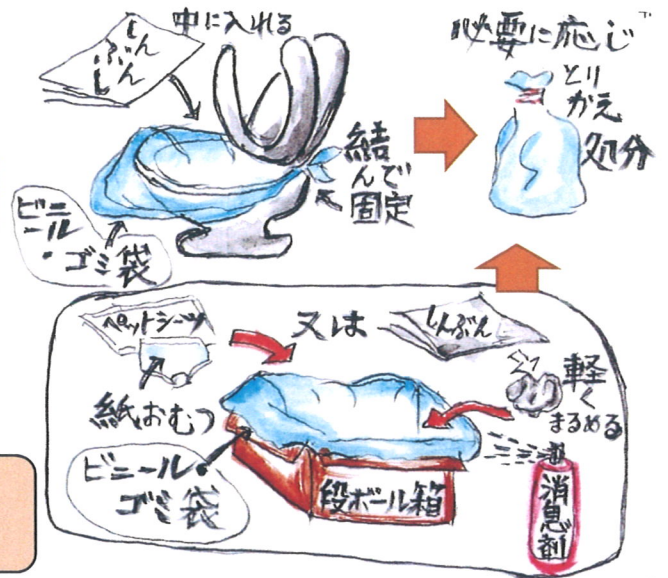 しんぶんし
中に入れる
必要に応じ
とり
かえ
処分
結
んで
固定
ビニ
ール
・
ゴミ袋
ペットシーツ
又は
しんぶん
紙おむつ
軽く
まるめる
ビニール
ゴミ袋
段ボール箱
消息剤